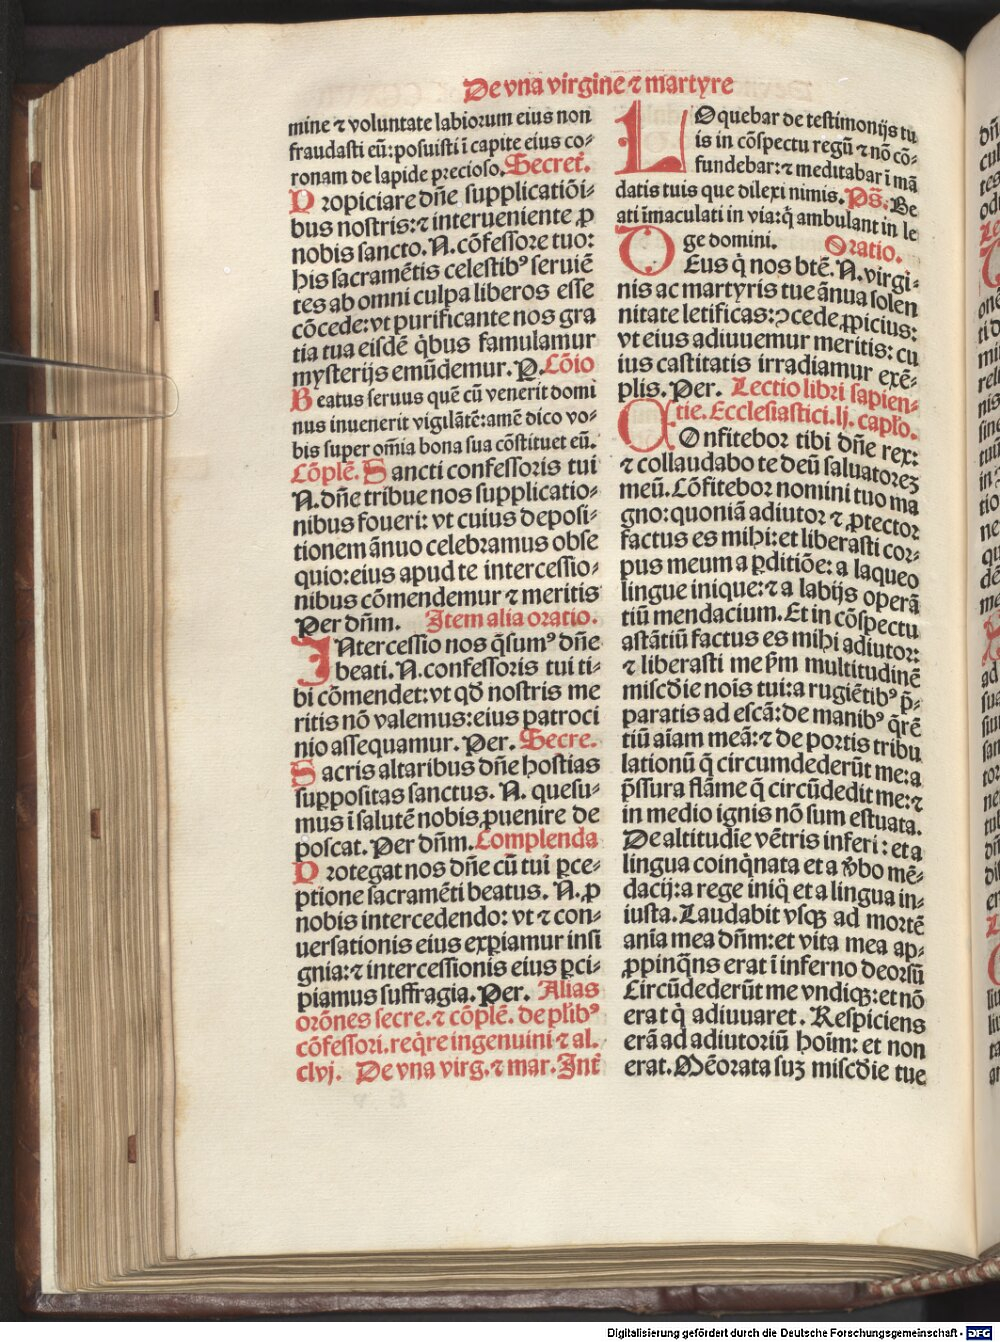 De vna virgine ⁊ martyre
mine ⁊ voluntate labiorum eius non
fraudasti eū: posuisti ī capite eius co⸗
ronam de lapide precioso. Secret̄.
Propiciare dn̄e supplicatiōi⸗
bus nostris: ⁊ interueniente ꝓ
nobis sancto. N. cōfessore tuo:
his sacramētis celestibꝰ seruiē
tes ab omni culpa liberos esse
cōcede: vt purificante nos gra
tia tua eisdē q̄bus famulamur
mysterijs emūdemur. P. Cōio
Beatus seruus quē cū venerit domi
nus inuenerit vigilātē: amē dico vo⸗
bis super om̄ia bona sua cōstituet eū.
Cōplē. Sancti confessoris tui
N. dn̄e tribue nos supplicatio⸗
nibus foueri: vt cuius deposi⸗
tionem ānuo celebramus obse
quio: eius apud te intercessio⸗
nibus cōmendemur ⁊ meritis
Per dn̄m. Item alia oratio.
INtercessio nos q̄sumꝰ dn̄e
beati. N. confessoris tui ti⸗
bi cōmendet: vt qd̄ nostris me
ritis nō valemus: eius patroci
nio assequamur. Per. Secre.
Sacris altaribus dn̄e hostias
suppositas sanctus. N. quesu⸗
mus ī salutē nobis ꝓuenire de
poscat. Per dn̄m. Complenda
Protegat nos dn̄e cū tui ꝑce⸗
ptione sacramēti beatus. N. ꝓ
nobis intercedendo: vt ⁊ con⸗
uersationis eius exꝑiamur insi
gnia: ⁊ intercessionis eius ꝑci⸗
piamus suffragia. Per. Alias
orōnes secre. ⁊ cōplē. de pl̄ibꝰ
cōfessori. req̄re ingenuini ⁊ al.
clvj. De vna virg. ⁊ mar. Int̄
LOquebar de testimonijs tu
is in cōspectu regū ⁊ nō cō⸗
fundebar: ⁊ meditabar ī mā
datis tuis que dilexi nimis. Ps̄. Be
ati īmaculati in via: q̄ ambulant in le
ge domini. Oratio.
DEus q̄ nos btē. N. virgi⸗
nis ac martyris tue ānua solen
nitate letificas: ꝯcede ꝓpicius:
vt eius adiuuemur meritis: cu
ius castitatis irradiamur exē⸗
plis. Per. Lectio libri sapien⸗
tie. Ecclesiastici. lj. capl̄o.
COnfitebor tibi dn̄e rex:
⁊ collaudabo te deū saluatoreꝫ
meū. Cōfitebor nomini tuo ma
gno: quoniā adiutor ⁊ ꝓtector
factus es mihi: et liberasti cor⸗
pus meum a ꝑditiōe: a laqueo
lingue inique: ⁊ a labijs operā
tiū mendacium. Et in cōspectu
astātiū factus es mihi adiutor:
⁊ liberasti me ꝑm̄ multitudinē
misc̄die nois tui: a rugiētibꝰ p̄⸗
paratis ad escā: de manibꝰ q̄rē
tiū aīam meā: ⁊ de portis tribu
lationū q̄ circumdederūt me: a
p̄ssura flāme q̄ circūdedit me: ⁊
in medio ignis nō sum estuata.
De altitudīe vētris inferi: et a
lingua coinq̄nata et a v̄bo mē⸗
dacij: a rege iniq̄ et a lingua in⸗
iusta. Laudabit vsqꝫ ad mortē
anīa mea dn̄m: et vita mea ap⸗
ꝓpinq̄ns erat ī inferno deorsū
Circūdederūt me vndiqꝫ: et nō
erat q̄ adiuuaret. Respiciens
erā ad adiutoriū hoīm: et non
erat. Mēorata suꝫ misc̄die tue
Digitalisierung gefördert durch die Deutsche Forschungsgemeinschaft - DFG